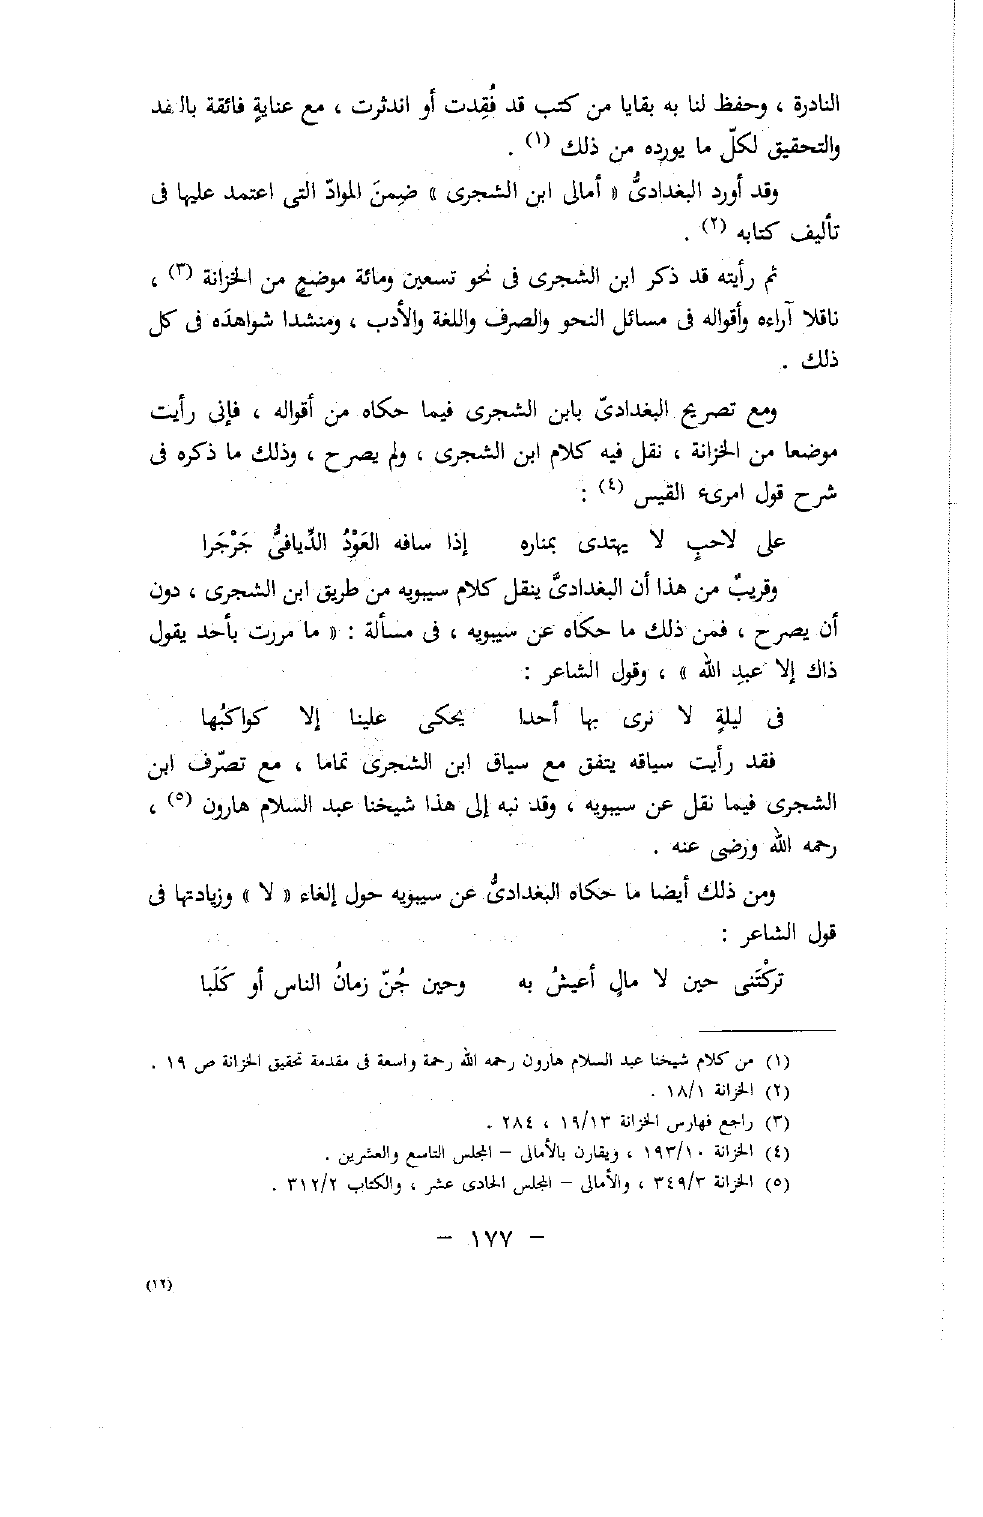 النادرة ، وحفظ لنا به بقايا من كتب قد فُقِدت أو اندثرت ، مع عنايةٍ فائقة
والتحقيق لكلّ ما يورده من ذلك (١) .
وقد أورد البغدادىُّ « أمالى ابن الشجرى » ضِمنَ الموادّ التى اعتمد عليها فى
تأليف كتابه (٢) .
ثم رأيته قد ذكر ابن الشجرى فى نحو تسعين ومائة موضعٍ من الخزانة (٣) ،
ناقلا آراءه وأقواله فى مسائل النحو والصرف واللغة والأدب ، ومنشدا شواهدَه فى كل
ذلك .
ومع تصريح البغدادىّ بابن الشجرى فيما حكاه من أقواله ، فإنى رأيت
موضعا من الخزانة ، نقل فيه كلام ابن الشجرى ، ولم يصرح ، وذلك ما ذكره فى
شرح قول امرىء القيس (٤) :
على لاحبٍ لا يهتدى بمناره إذا سافه العَوْدُ الدِّيافىُّ جَرْجَرا
وقريبٌ من هذا أن البغدادىَّ ينقل كلام سيبويه من طريق ابن الشجرى ، دون
أن يصرح ، فمن ذلك ما حكاه عن سيبويه ، فى مسألة : « ما مررت بأحد يقول
ذاك إلا عبدِ الله » ، وقول الشاعر :
فى ليلةٍ لا نرى بها أحدا يحكى علينا إلا كواكبُها
فقد رأيت سياقه يتفق مع سياق ابن الشجرى تماما ، مع تصرّف ابن
الشجرى فيما نقل عن سيبويه ، وقد نبه إلى هذا شيخنا عبد السلام هارون (٥) ،
رحمه الله ورضى عنه .
ومن ذلك أيضا ما حكاه البغدادىُّ عن سيبويه حول إلغاء « لا » وزيادتها فى
قول الشاعر :
تركْتَنى حين لا مالٍ أعيشُ به وحين جُنّ زمانُ الناس أو كَلَبا
(١) من كلام شيخنا عبد السلام هارون رحمه الله رحمة واسعة فى مقدمة تحقيق الخزانة ص ١٩ .
(٢) الخزانة ١٨/١ .
(٣) راجع فهارس الخزانة ١٩/١٣ ، ٢٨٤ .
(٤) الخزانة ١٩٣/١٠ ، ويقارن بالأمالى – المجلس التاسع والعشرين .
(٥) الخزانة ٣٤٩/٣ ، والأمالى – المجلس الحادى عشر ، والكتاب ٣١٢/٢ .
– ١٧٧ –
(١٢)